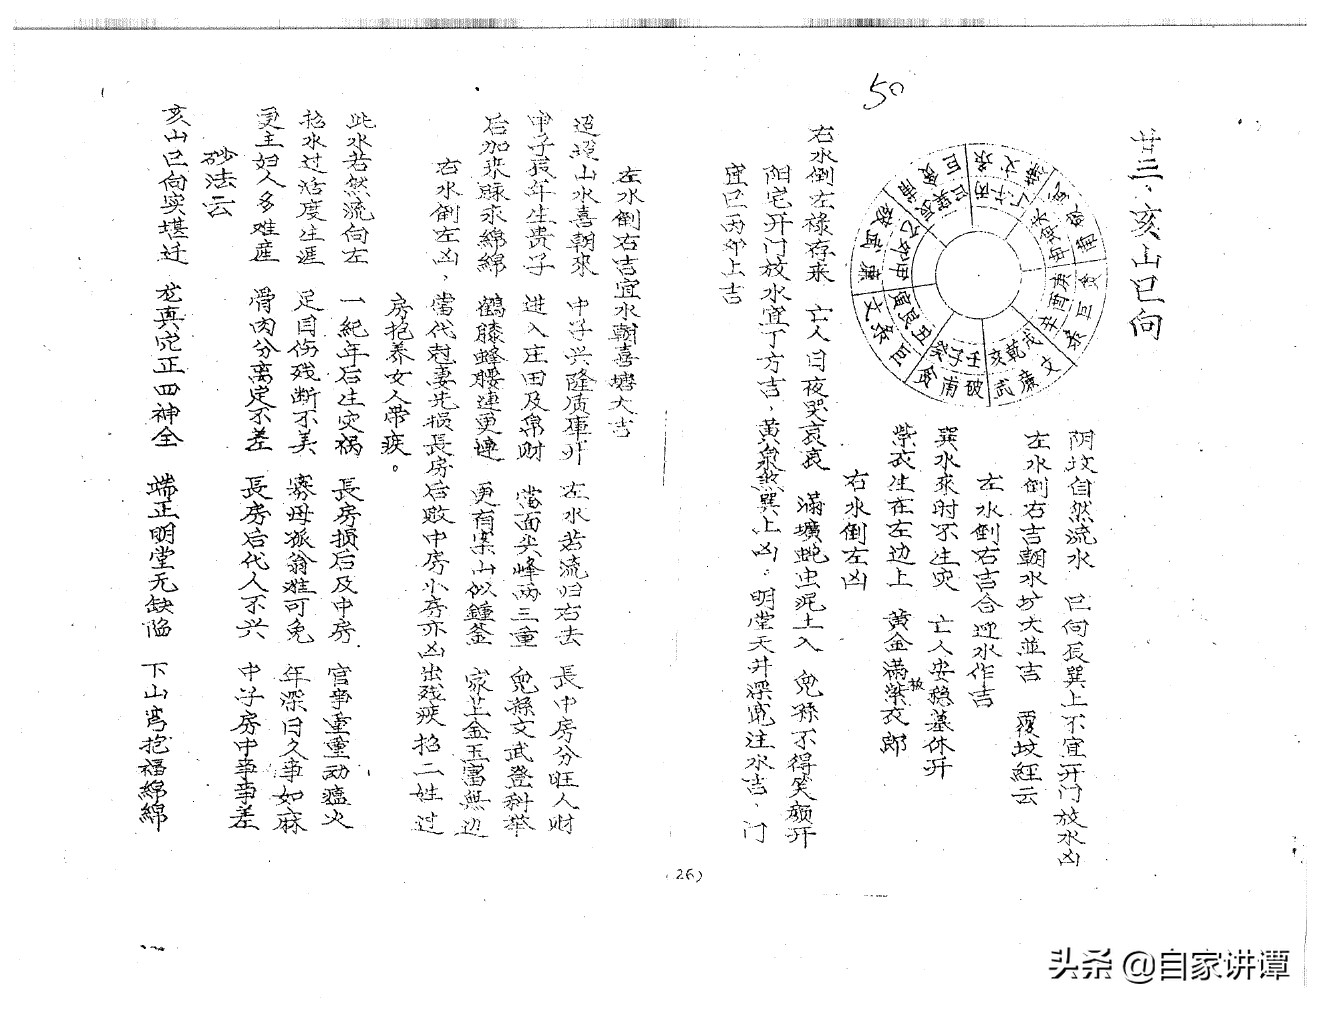 50
廿三、亥山巳向
阴坟自然流水 巳向辰巽上不宜开门放水凶
左水倒右吉朝水圹大並吉 覆坟經云
左水倒右吉合迎水作吉
巽水來时不生灾 亡人安稳墓休开
紫衣生在左边上 黄金满紫衣郎
右水倒左凶
右水倒左禄存来 亡人日夜哭哀哀 滿壙蛇虫泥土入 兒孫不得笑颜开
阳宅开门放水宜丁方吉，黄泉煞巽上凶。明堂天井深宽注水吉，门
宜巳丙卯上吉
左水倒右吉宜水朝喜塘大吉
迢迢山水喜朝來 中子兴隆廣庫开 左水若流归右去 長中房分旺人财
申子辰年生贵子 進入庄田及帛财 當面尖峰两三重 兒孫文武登科举
后加來龍永綿綿 鶴膝蜂腰連更連 更有案山似鍾釜 家足金玉富無边
右水倒左凶，當代尅妻先损長房后败中房小房亦凶出残疾招二姓过
房抱养女人带疾。
此水若然流向左 一紀年后生灾祸 長房损后及中房 官事重重动瘟火
招水过活度生涯 足目伤残断不美 寡母孤翁难可免 年深日久事如麻
更主妇人多难産 骨肉分离定不差 長房后代人不兴 中子房中事事差
砂法云
亥山巳向实堪迁 龙真穴正四神全 端正明堂无缺陷 下山弯抱福綿綿
(26)
头条 @自家讲谭